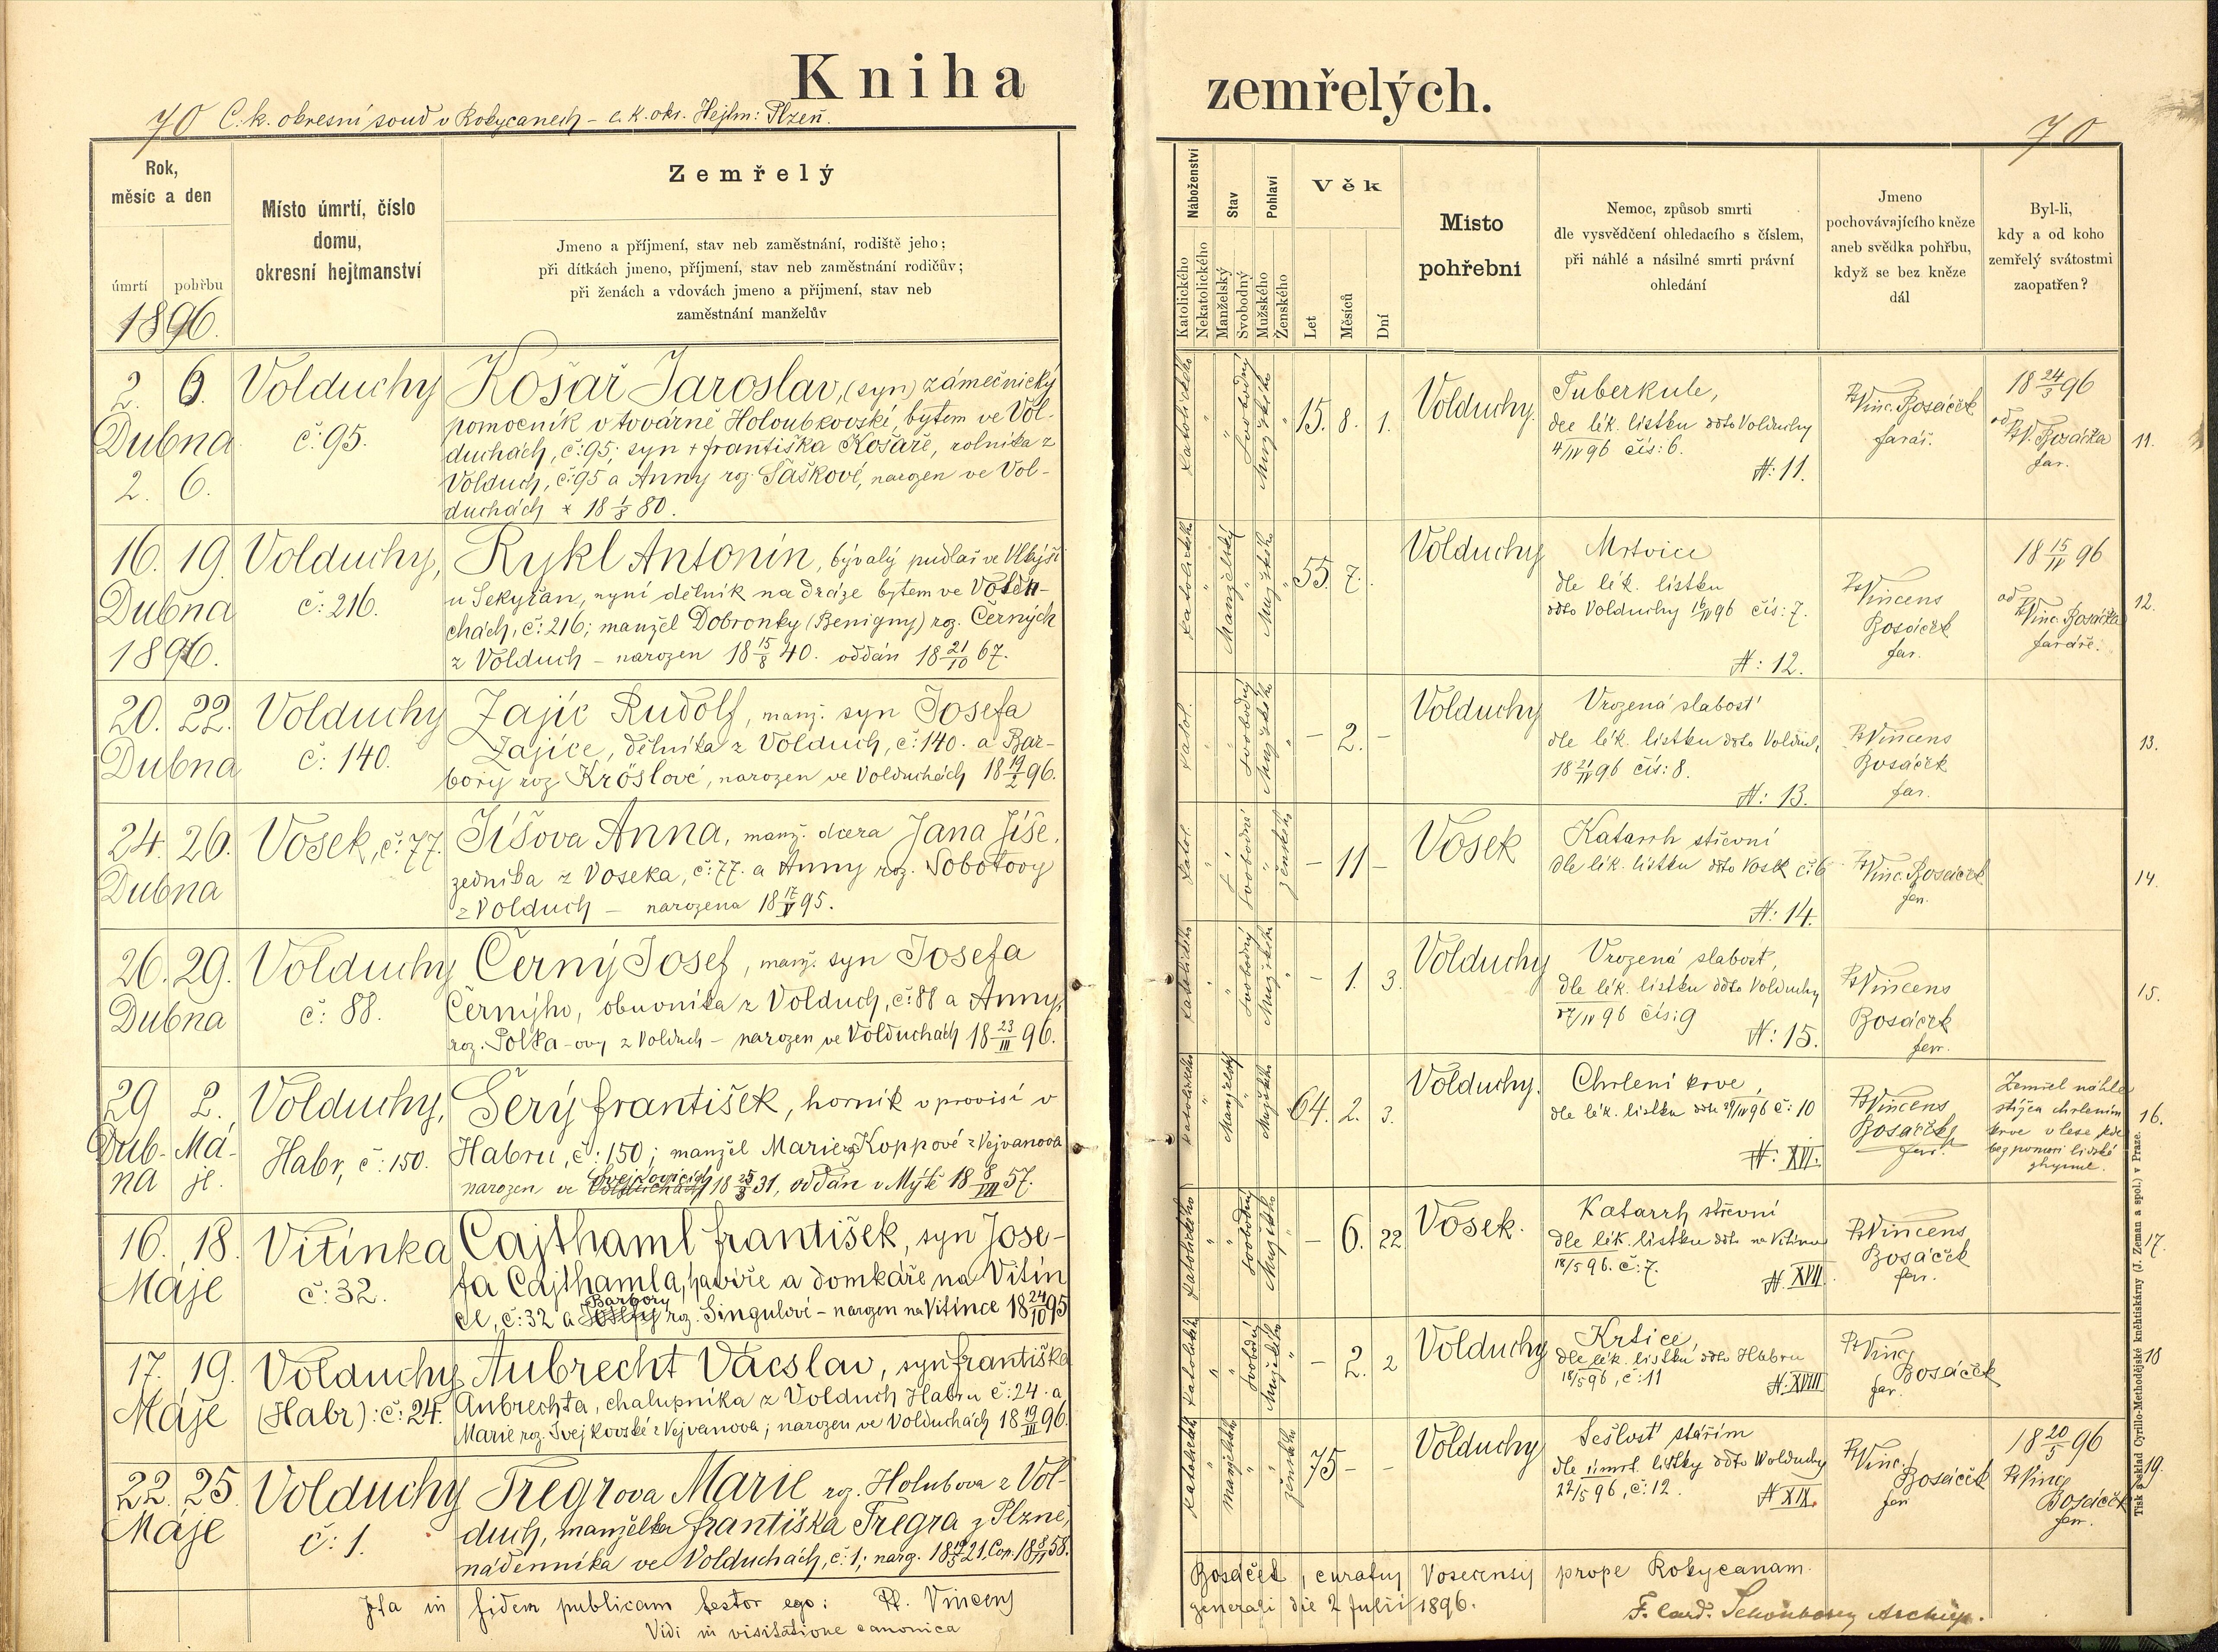 Kniha zemřelých.
70 C. k. okresní soud v Rokycanech – c. k. okr. Hejtm: Plzeň.
70
Rok,
měsíc a den
úmrtí pohřbu
1896.
Místo úmrtí, číslo
domu,
okresní hejtmanství
Zemřelý
Jmeno a příjmení, stav neb zaměstnání, rodiště jeho;
při dítkách jmeno, příjmení, stav neb zaměstnání rodičův;
při ženách a vdovách jmeno a příjmení, stav neb
zaměstnání manželův
Náboženství
Katolického
Nekatolického
Stav
Manželský
Svobodný
Pohlaví
Mužského
Ženského
Věk
Let
Měsíců
Dní
Místo
pohřební
Nemoc, způsob smrti
dle vysvědčení ohledacího s číslem,
při náhlé a násilné smrti právní
ohledání
Jmeno
pochovávajícího kněze
aneb svědka pohřbu,
když se bez kněze
dál
Byl-li,
kdy a od koho
zemřelý svátostmi
zaopatřen?
2. 6.
Dubna
2. 6.
Volduchy
č: 95.
Košař Jaroslav, (syn) zámečnický
pomocník v továrně Holoubkovské, bytem ve Vol-
duchách, č: 95; syn + františka Košaře, rolníka z
Volduch, č: 95 a Anny roz. Šaškové, narozen ve Vol-
duchách * 18 1/8 80.
Katolického
Svobodný
Mužského
15. 8. 1.
Volduchy.
Tuberkule,
dle lék. lístku ddto Volduchy
4/IV 96 čís: 6.
N: 11.
P. Vinc. Bosáček
farář.
18 24/3 96
od
P. V. Bosáčka
far.
11.
16. 19.
Dubna
1896.
Volduchy,
č: 216.
Rykl Antonín, bývalý pudlař ve Vlkýši
u Sekyřan, nyní dělník na dráze bytem ve Voldu-
chách, č: 216; manžel Dobronky (Benigny) roz. Černých
z Volduch – narozen 18 15/8 40. oddán 18 21/10 67.
Katolického
Manželský
Mužského
55. 7.
Volduchy
Mrtvice
dle lék. lístku
ddto Volduchy 16/IV 96 čís: 7.
N: 12.
P. Vincens
Bosáček
far.
18 15/IV 96
od
P. Vinc. Bosáčka
faráře.
12.
20. 22.
Dubna
Volduchy
č: 140.
Zajíc Rudolf, manž. syn Josefa
Zajíce, dělníka z Volduch, č: 140. a Bar-
bory roz. Kröslové, narozen ve Volduchách 18 19/2 96.
Katol.
Svobodný
Mužského
– 2. –
Volduchy
Vrozená slabost
dle lék. lístku ddto Volduch,
18 21/IV 96 čís: 8.
N: 13.
P. Vincens
Bosáček
far.
13.
24. 26.
Dubna
Vosek, č: 77.
Jíšova Anna, manž. dcera Jana Jíše,
zedníka z Voseka, č: 77. a Anny roz. Sobotovy
z Volduch – narozena 18 17/V 95.
Katol.
Svobodné
Ženského
– 11 –
Vosek
Katarrh střevní
dle lék. lístku ddto Vosek č: 6
N: 14.
P. Vinc. Bosáček
far.
14.
26. 29.
Dubna
Volduchy
č: 88.
Černý Josef, manž. syn Josefa
Černýho, obuvníka z Volduch, č: 88 a Anny,
roz. Polka-ovy z Volduch – narozen ve Volduchách 18 23/III 96.
Katolického
Svobodný
Mužského
– 1. 3.
Volduchy
Vrozená slabost,
dle lék. lístku ddto Volduchy
27/IV 96 čís: 9
N: 15.
P. Vincens
Bosáček
farr.
15.
29 2.
Dub- Má-
na je.
Volduchy,
Habr, č: 150.
Šerý františek, horník v provisí v
Habru, č: 150; manžel Marie roz. Koppové z Vejvanova
Svejkovicích
narozen ve Volduchách 18 25/3 31, oddán v Mýtě 18 8/VII 57.
Katolického
Manželský
Mužského
64. 2. 3.
Volduchy.
Chrlení krve,
dle lék. lístku ddto 29/IV 96 č: 10
N: XVI.
P. Vincens
Bosáček
farr.
Zemřel náhle
stížen chrlením
krve v lese kde
bez pomoci lidské
zhynul.
16.
16. 18.
Máje
Vitinka
č: 32.
Cajthaml františek, syn Jose-
fa Cajthamla, havíře a domkáře na Vitín
Barbory
ce, č: 32 a roz. Singulové – narozen na Vitínce 18 24/10 95
Katolického
Svobodný
Mužského
– 6. 22
Vosek.
Katarrh střevní
dle lék. lístku ddto na Vitince
18/5 96. č: 7.
N XVII.
P. Vincens
Bosáček
farr.
17.
17. 19.
Máje
Volduchy
(Habr): č: 24.
Aubrecht Vácslav, syn františka
Aubrechta, chalupníka z Volduch Habru č: 24. a
Marie roz. Svejkovské z Vejvanova; narozen ve Volduchách 18 19/III 96.
Katolického
Svobodný
Mužského
– 2. 2
Volduchy
Krtice,
dle lék. lístku ddto Habru
18/5 96, č: 11
N: XVIII
P. Vinc
Bosáček
far.
18
22. 25.
Máje
Volduchy
č: 1.
Tregrova Marie roz. Holubova z Vol-
duch, manželka františka Tregra z Plzně,
nádenníka ve Volduchách, č: 1; narz. 18 21. Cop. 18 58.
Katolického
manželského
ženského
75 – –
Volduchy
Sešlost stářím
dle úmrt. lístky ddto Wolduchy
22/5 96, č: 12.
N XIX.
P. Vinc.
Bosáček
farr
18 20/5 96
P. Vinc.
Bosáček
farr.
19.
Ita in fidem publicam testor ego: P. Vincens Bosáček, curatus Vosecensis prope Rokycanam.
Vidi in visitatione canonica generali die 2 Julii 1896.
F. Card. Schönborn Archiep.
Tisk a sklad Cyrillo-Methodějské knihtiskárny (J. Zeman a spol.) v Praze.